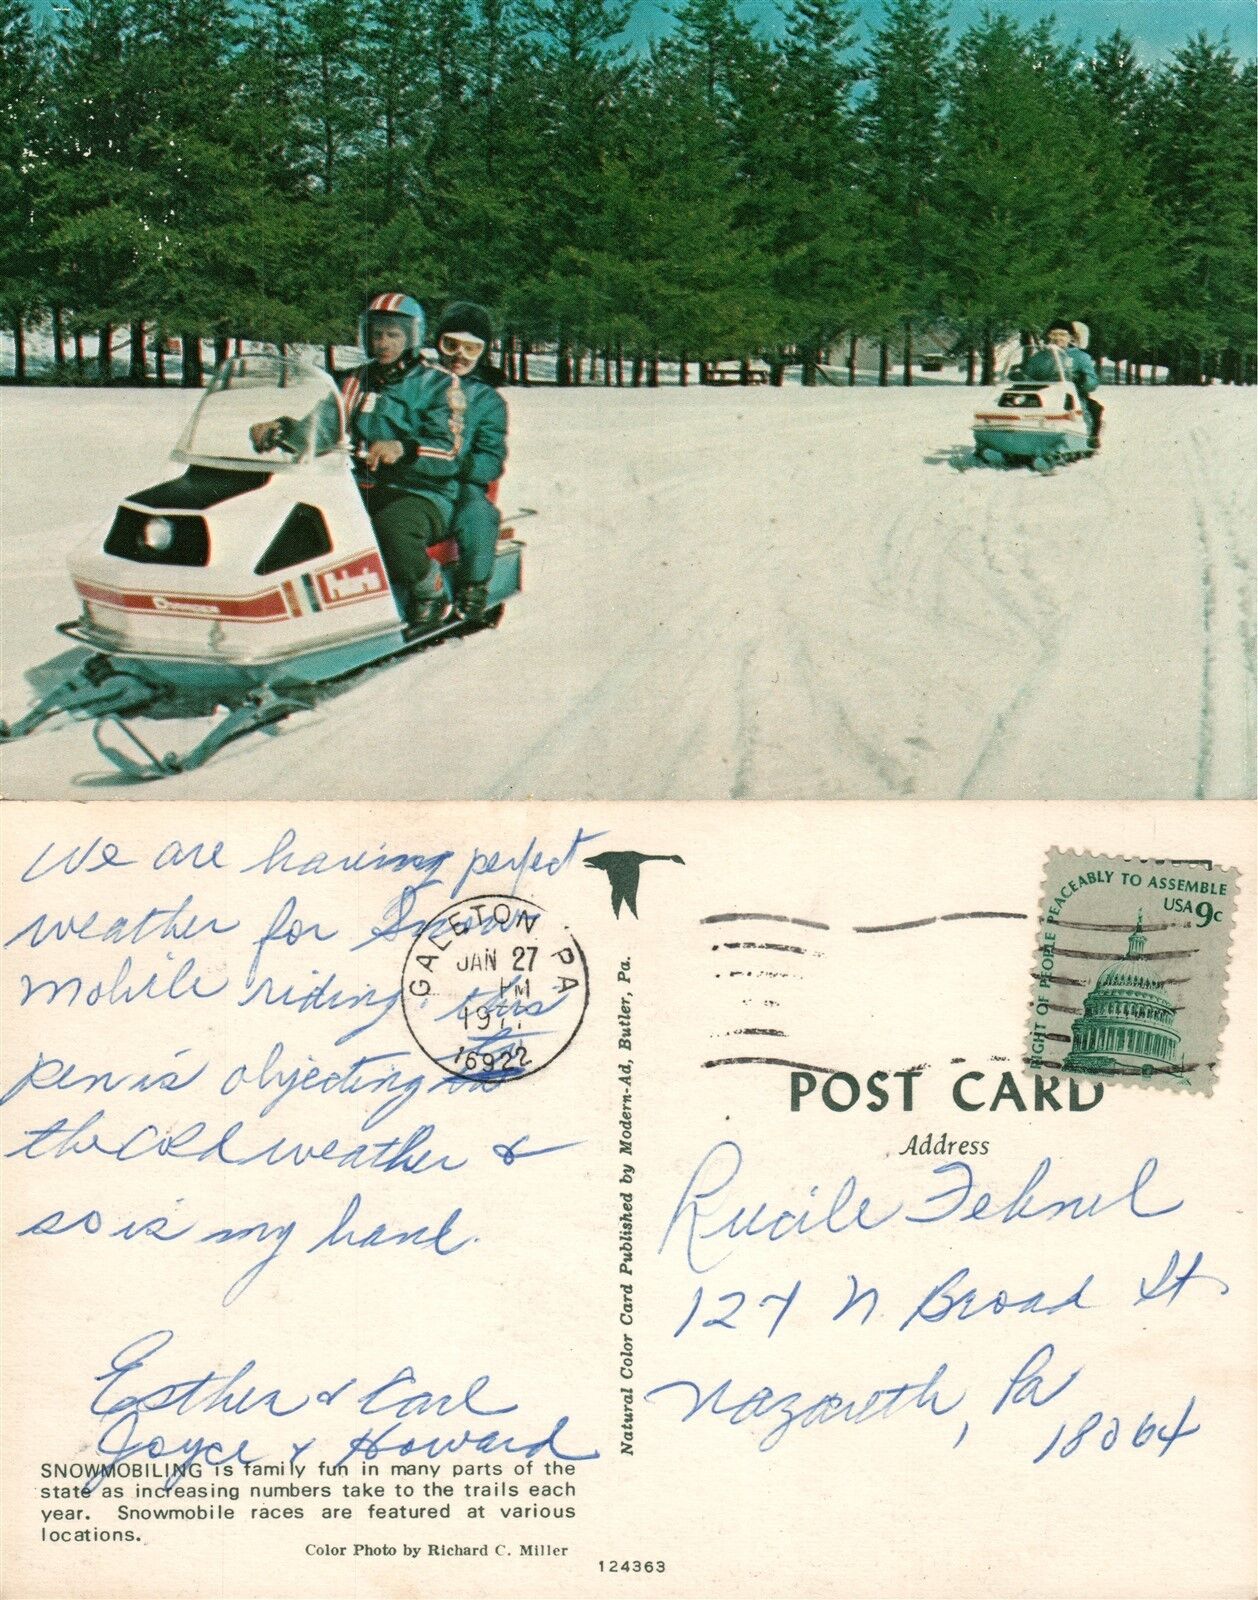 Polaris
Charger
We are having perfect
weather for Snow
Mobile riding. this
pen is objecting to
the cold weather &
so is my hand.
Esther & Earl
Joyce & Howard
SNOWMOBILING is family fun in many parts of the
state as increasing numbers take to the trails each
year. Snowmobile races are featured at various
locations.
Color Photo by Richard C. Miller
124363
Natural Color Card Published by Modern-Ad, Butler, Pa.
GALETON PA
JAN 27
PM
1977
16922
RIGHT OF PEOPLE PEACEABLY TO ASSEMBLE
USA 9c
POST CARD
Address
Lucile Fehnel
127 N Broad St.
Nazareth, Pa
18064